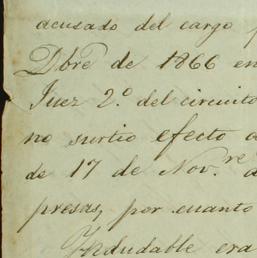 acusado del cargo
Dbre de 1866 en
Juez 2.º del circuito
no surtio efecto
de 17 de Nov.re
presas, por cuanto
Indudable era